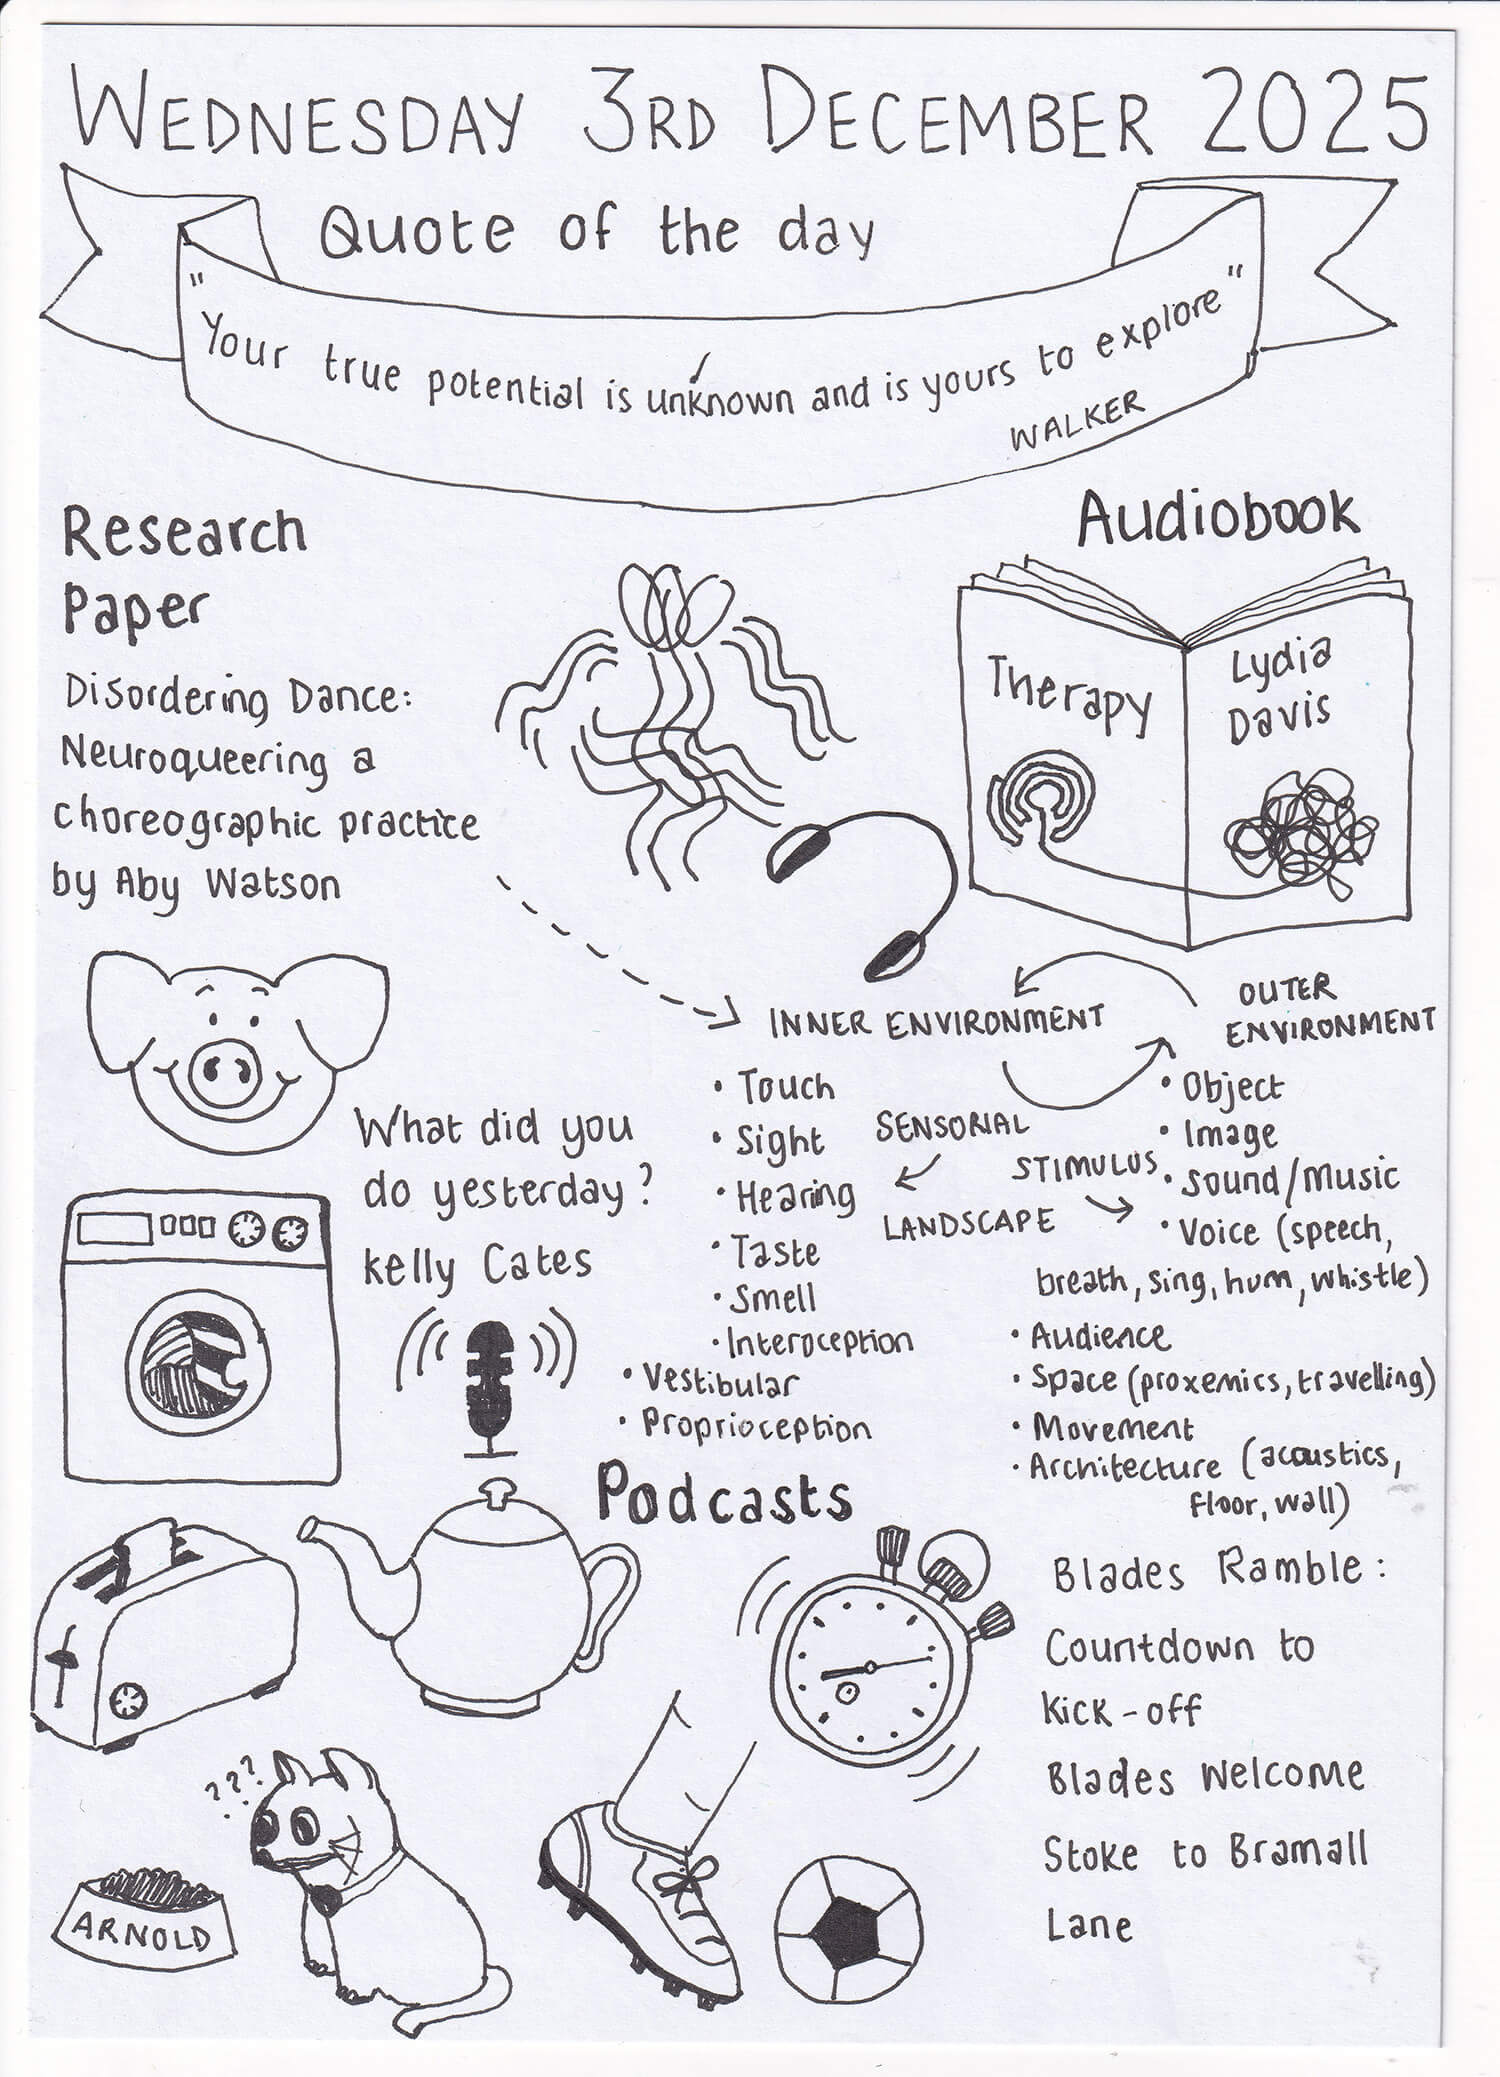 WEDNESDAY 3RD DECEMBER 2025
Quote of the day
"Your true potential is unknown and is yours to explore"
WALKER
Research
Paper
Disordering Dance:
Neuroqueering a
choreographic practice
by Aby Watson
Audiobook
Therapy
Lydia
Davis
INNER ENVIRONMENT
• Touch
• Sight
• Hearing
• Taste
• Smell
• Interoception
• Vestibular
• Proprioception
SENSORIAL
LANDSCAPE
STIMULUS
OUTER
ENVIRONMENT
• Object
• Image
• Sound/Music
• Voice (speech,
breath, sing, hum, whistle)
• Audience
• Space (proxemics, travelling)
• Movement
• Architecture (acoustics,
floor, wall)
What did you
do yesterday?
Kelly Cates
Podcasts
Blades Ramble:
Countdown to
Kick-off
Blades Welcome
Stoke to Bramall
Lane
???
ARNOLD